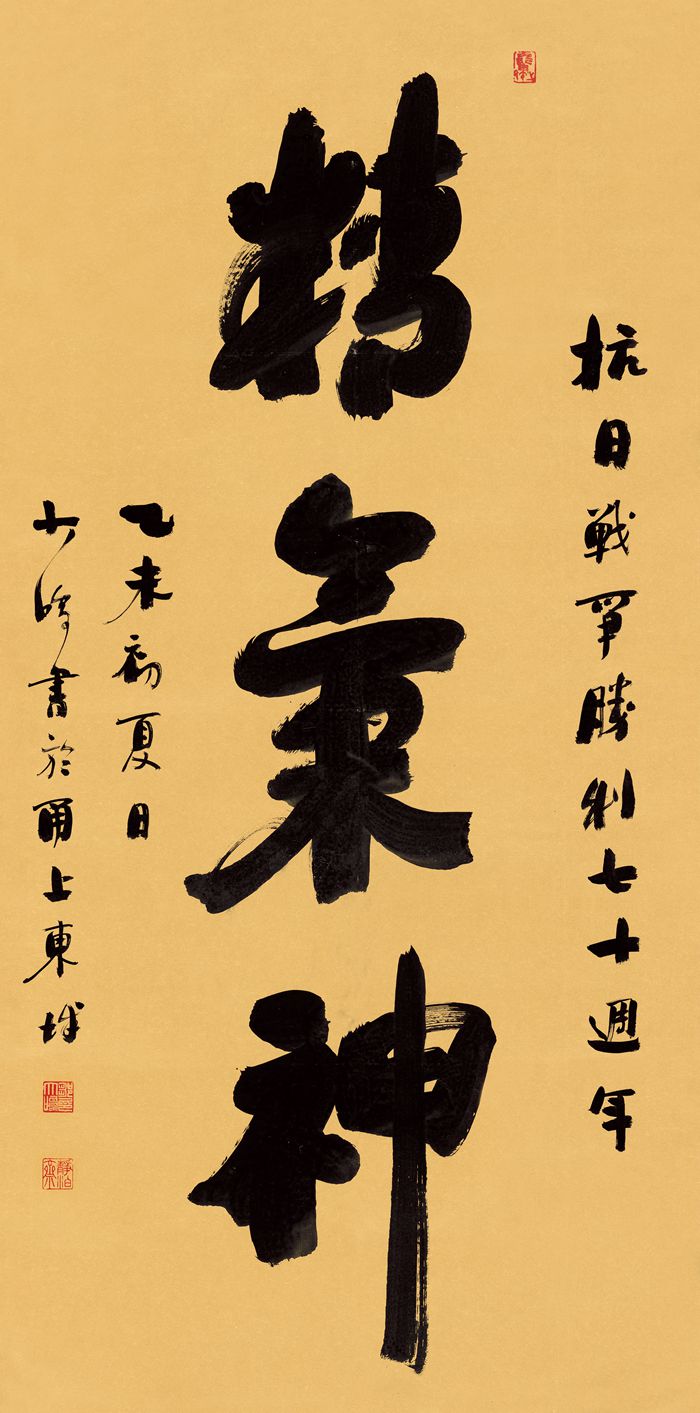 抗日戰爭勝利七十週年
精氣神
乙未初夏日
書於甬上東城